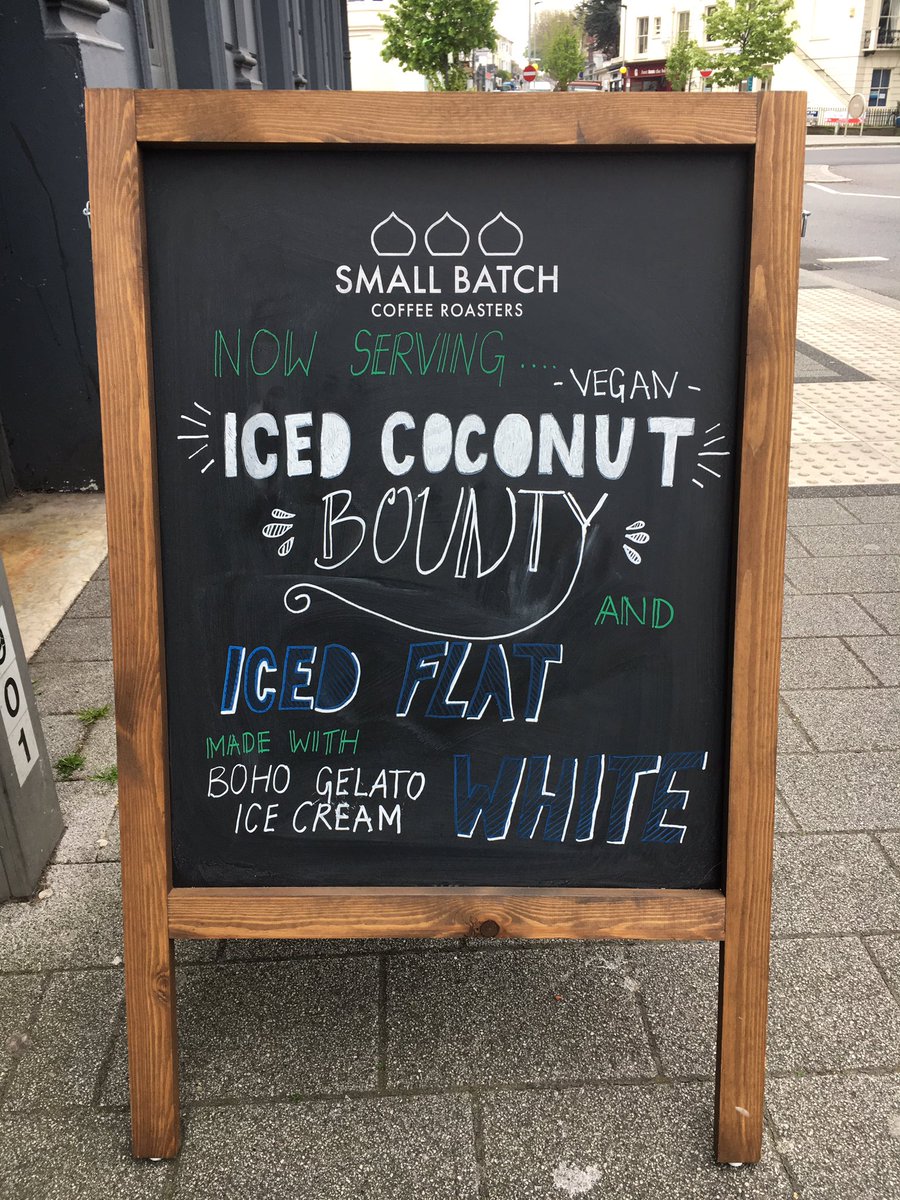 SMALL BATCH
COFFEE ROASTERS
NOW SERVING....
-VEGAN-
ICED COCONUT
BOUNTY
AND
ICED FLAT
WHITE
MADE WITH
BOHO GELATO
ICE CREAM
01